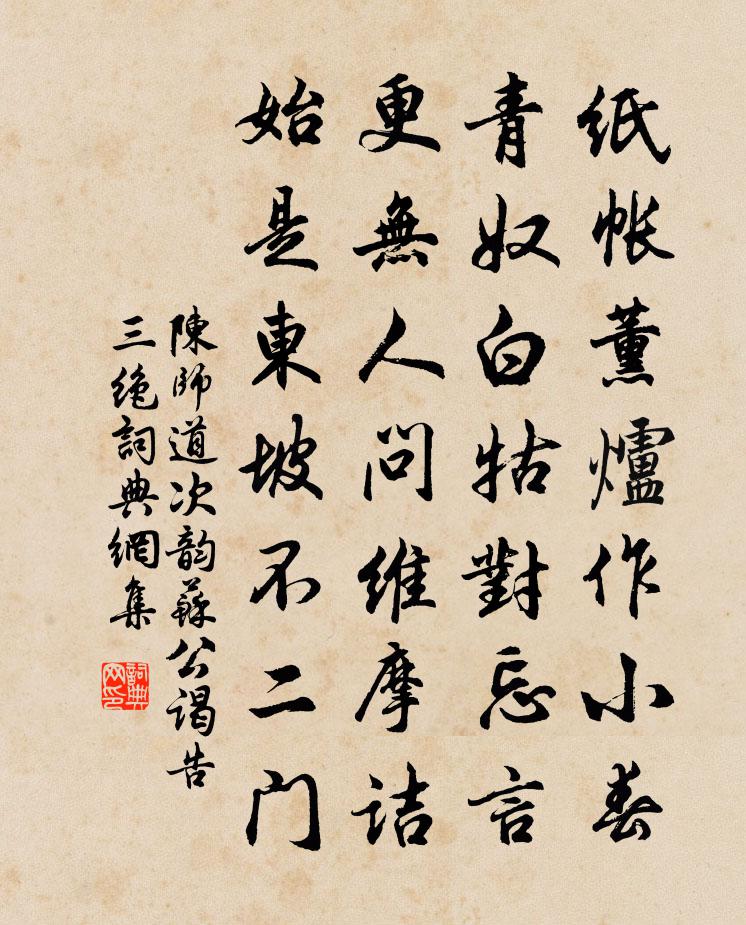 紙帳薰爐作小春
青奴白牯對忘言
更無人問維摩詰
始是東坡不二门
陳師道次韵蘇公谒告
三绝詞典網集
詞典网印